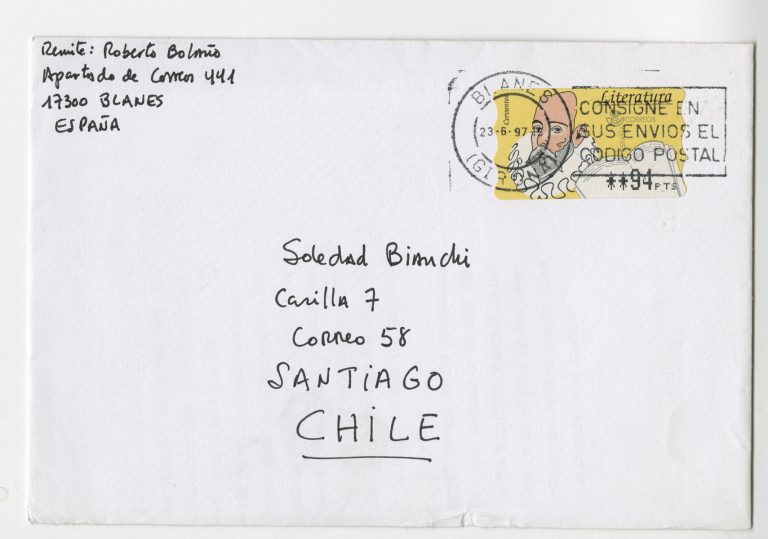 Remite: Roberto Bolaño
Apartado de Correos 441
17300 BLANES
ESPAÑA
BLANES
23-6-97
(GIRONA)
Cervantes
Literatura
CORREOS
CONSIGNE EN
SUS ENVIOS EL
CODIGO POSTAL
**94 PTS
Soledad Bianchi
Casilla 7
Correo 58
SANTIAGO
CHILE